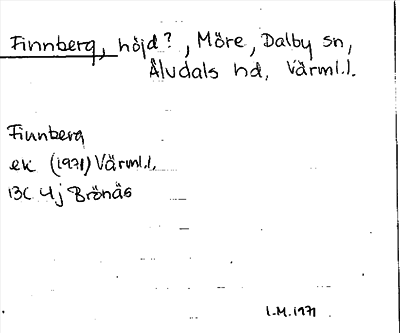 Finnberg, höjd?, Möre, Dalby sn,
Älvdals hd, Värml.l.
Finnberg
ek (1971) Värml.l.
13C 4j Brönäs
I.M. 1971